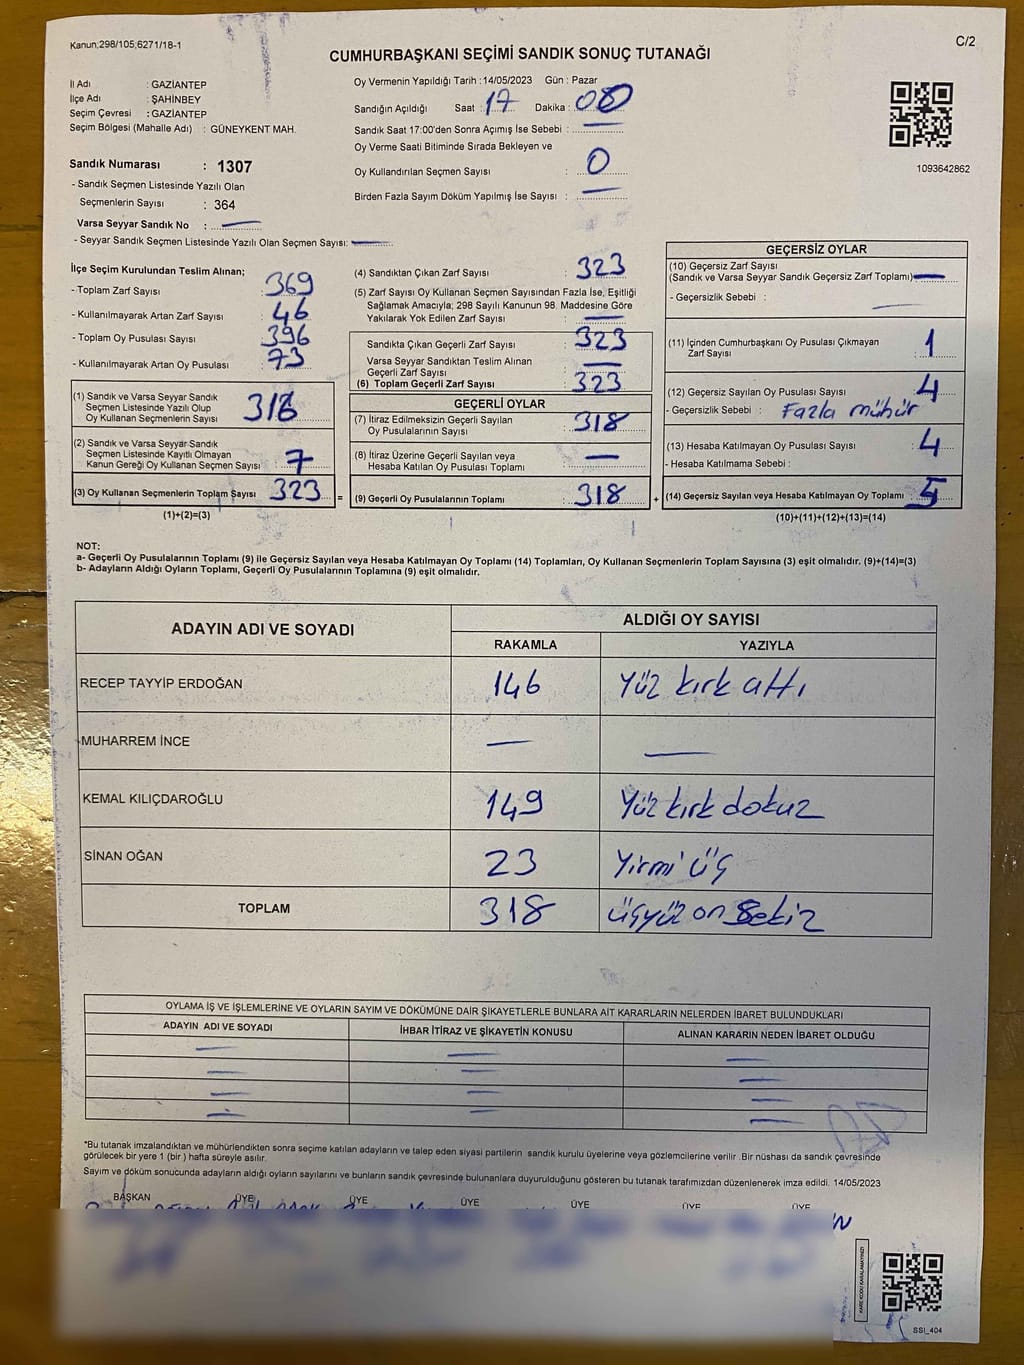 Kanun;298/105;6271/18-1
C/2
CUMHURBAŞKANI SEÇİMİ SANDIK SONUÇ TUTANAĞI
İl Adı : GAZİANTEP
İlçe Adı : ŞAHİNBEY
Seçim Çevresi : GAZİANTEP
Seçim Bölgesi (Mahalle Adı) : GÜNEYKENT MAH.
Sandık Numarası : 1307
- Sandık Seçmen Listesinde Yazılı Olan
Seçmenlerin Sayısı : 364
Varsa Seyyar Sandık No : —
- Seyyar Sandık Seçmen Listesinde Yazılı Olan Seçmen Sayısı: —
Oy Vermenin Yapıldığı Tarih :14/05/2023 Gün : Pazar
Sandığın Açıldığı Saat : 17 Dakika : 00
Sandık Saat 17:00'den Sonra Açımış İse Sebebi : —
Oy Verme Saati Bitiminde Sırada Bekleyen ve
Oy Kullandırılan Seçmen Sayısı : 0
Birden Fazla Sayım Döküm Yapılmış İse Sayısı : —
1093642862
İlçe Seçim Kurulundan Teslim Alınan;
- Toplam Zarf Sayısı : 369
- Kullanılmayarak Artan Zarf Sayısı : 46
- Toplam Oy Pusulası Sayısı : 396
- Kullanılmayarak Artan Oy Pusulası : 73
(1) Sandık ve Varsa Seyyar Sandık
Seçmen Listesinde Yazılı Olup
Oy Kullanan Seçmenlerin Sayısı 316
(2) Sandık ve Varsa Seyyar Sandık
Seçmen Listesinde Kayıtlı Olmayan
Kanun Gereği Oy Kullanan Seçmen Sayısı 7
(3) Oy Kullanan Seçmenlerin Toplam Sayısı 323 =
(1)+(2)=(3)
(4) Sandıktan Çıkan Zarf Sayısı : 323
(5) Zarf Sayısı Oy Kullanan Seçmen Sayısından Fazla İse, Eşitliği
Sağlamak Amacıyla; 298 Sayılı Kanunun 98. Maddesine Göre
Yakılarak Yok Edilen Zarf Sayısı : —
Sandıkta Çıkan Geçerli Zarf Sayısı : 323
Varsa Seyyar Sandıktan Teslim Alınan
Geçerli Zarf Sayısı : —
(6) Toplam Geçerli Zarf Sayısı : 323
GEÇERLİ OYLAR
(7) İtiraz Edilmeksizin Geçerli Sayılan
Oy Pusulalarının Sayısı : 318
(8) İtiraz Üzerine Geçerli Sayılan veya
Hesaba Katılan Oy Pusulası Toplamı : —
(9) Geçerli Oy Pusulalarının Toplamı : 318 +
GEÇERSİZ OYLAR
(10) Geçersiz Zarf Sayısı
(Sandık ve Varsa Seyyar Sandık Geçersiz Zarf Toplamı) —
- Geçersizlik Sebebi : —
(11) İçinden Cumhurbaşkanı Oy Pusulası Çıkmayan
Zarf Sayısı : 1
(12) Geçersiz Sayılan Oy Pusulası Sayısı : 4
- Geçersizlik Sebebi : Fazla mühür
(13) Hesaba Katılmayan Oy Pusulası Sayısı : 4
- Hesaba Katılmama Sebebi :
(14) Geçersiz Sayılan veya Hesaba Katılmayan Oy Toplamı : 5
(10)+(11)+(12)+(13)=(14)
NOT:
a- Geçerli Oy Pusulalarının Toplamı (9) ile Geçersiz Sayılan veya Hesaba Katılmayan Oy Toplamı (14) Toplamları, Oy Kullanan Seçmenlerin Toplam Sayısına (3) eşit olmalıdır. (9)+(14)=(3)
b- Adayların Aldığı Oyların Toplamı, Geçerli Oy Pusulalarının Toplamına (9) eşit olmalıdır.
ADAYIN ADI VE SOYADI
ALDIĞI OY SAYISI
RAKAMLA YAZIYLA
RECEP TAYYİP ERDOĞAN 146 Yüz kırk altı
MUHARREM İNCE — —
KEMAL KILIÇDAROĞLU 149 Yüz kırk dokuz
SİNAN OĞAN 23 Yirmi üç
TOPLAM 318 üçyüz on sekiz
OYLAMA İŞ VE İŞLEMLERİNE VE OYLARIN SAYIM VE DÖKÜMÜNE DAİR ŞİKAYETLERLE BUNLARA AİT KARARLARIN NELERDEN İBARET BULUNDUKLARI
ADAYIN ADI VE SOYADI İHBAR İTİRAZ VE ŞİKAYETİN KONUSU ALINAN KARARIN NEDEN İBARET OLDUĞU
— — —
— — —
— — —
— — —
*Bu tutanak imzalandıktan ve mühürlendikten sonra seçime katılan adayların ve talep eden siyasi partilerin sandık kurulu üyelerine veya gözlemcilerine verilir .Bir nüshası da sandık çevresinde
görülecek bir yere 1 (bir ) hafta süreyle asılır.
Sayım ve döküm sonucunda adayların aldığı oyların sayılarını ve bunların sandık çevresinde bulunanlara duyurulduğunu gösteren bu tutanak tarafımızdan düzenlenerek imza edildi. 14/05/2023
BAŞKAN ÜYE ÜYE ÜYE ÜYE ÜYE ÜYE
KARE KODU KARALAMAYINIZ!
SSI_404